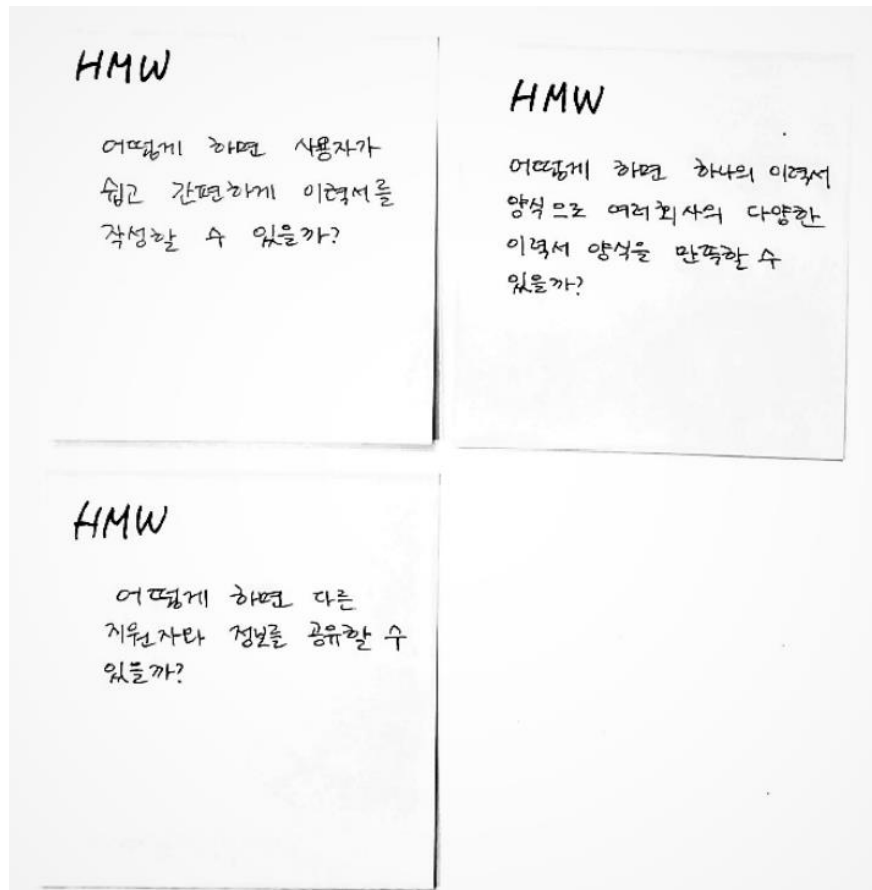 HMW
어떻게 하면 사용자가
쉽고 간편하게 이력서를
작성할 수 있을까?
HMW
어떻게 하면 하나의 이력서
양식으로 여러회사의 다양한
이력서 양식을 만족할 수
있을까?
HMW
어떻게 하면 다른
지원자와 정보를 공유할 수
있을까?